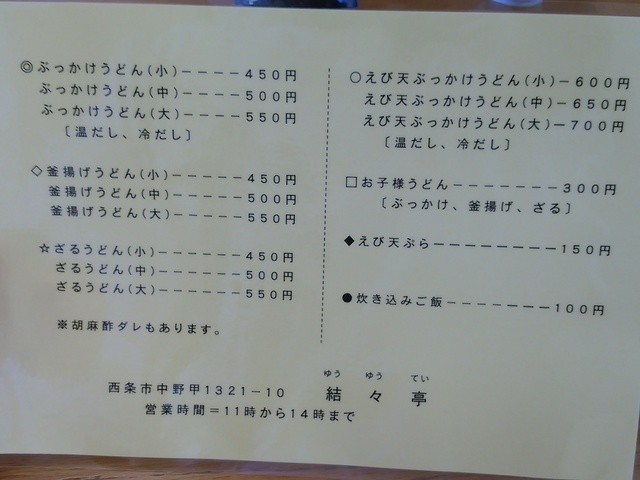 ◎ぶっかけうどん(小)－－－－450円
ぶっかけうどん(中)－－－－500円
ぶっかけうどん(大)－－－－550円
〔温だし、冷だし〕
◇釜揚げうどん(小)－－－－－450円
釜揚げうどん(中)－－－－－500円
釜揚げうどん(大)－－－－－550円
☆ざるうどん(小)－－－－－－450円
ざるうどん(中)－－－－－－500円
ざるうどん(大)－－－－－－550円
※胡麻酢ダレもあります。
○えび天ぶっかけうどん(小)－600円
えび天ぶっかけうどん(中)－650円
えび天ぶっかけうどん(大)－700円
〔温だし、冷だし〕
□お子様うどん－－－－－－－300円
〔ぶっかけ、釜揚げ、ざる〕
◆えび天ぷら－－－－－－－－－150円
●炊き込みご飯－－－－－－－－100円
ゆう ゆう てい
西条市中野甲1321－10 結々亭
営業時間＝11時から14時まで